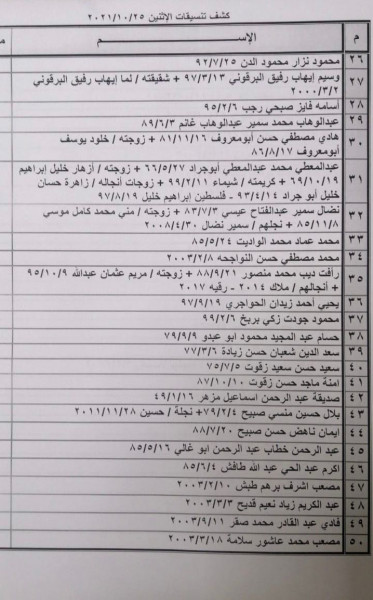 كشف تنسيقات الاثنين ٢٠٢١/١٠/٢٥
م الإســـم
٢٦ محمود نزار محمود الدن ٩٢/٧/٢٥
٢٧ وسيم إيهاب رفيق البرقوني ٩٧/٣/١٣ + شقيقته / لما إيهاب رفيق البرقوني
٢٠٠٠/٣/٢
٢٨ أسامه فايز صبحي رجب ٩٥/٢/٦
٢٩ عبدالوهاب محمد سمير عبدالوهاب غانم ٨٩/٦/٣
٣٠ هادي مصطفي حسن أبومعروف ٨١/١١/١٦ + زوجته / خلود يوسف
أبومعروف ٨٦/٨/١٧
٣١ عبدالمعطي محمد عبدالمعطي أبوجراد ٦٦/٥/٢٧ + زوجته / أزهار خليل إبراهيم
٦٩/١٠/١٩ + كريمته / شيماء ٩٩/٢/١١ + زوجات أنجاله / زاهرة حسان
خليل أبو جراد ٩٣/٤/١٤ - فلسطين إبراهيم خليل ٩٧/٨/١٩
٣٢ نضال سمير عبدالفتاح عيسي ٨٣/٧/٣ + زوجته / مني محمد كامل موسي
٨٥/١١/٨ + نجلهم / سمير نضال ٢٠٠٨/٤/٣٠
٣٣ محمد عماد محمد الواديت ٨٥/٥/٢٤
٣٤ محمد مصطفي حسن النواجحه ٢٠٠٣/٢/٨
٣٥ رأفت ديب محمد منصور ٨٨/٩/٢١ + زوجته / مريم عثمان عبدالله ٩٥/١٠/٩
+ أنجالهم / ملاك ٢٠١٤ - رقيه ٢٠١٧
٣٦ يحيي أحمد زيدان الحواجري ٩٧/٩/١٩
٣٧ محمود جودت زكي بربخ ٩٩/٢/٦
٣٨ حسام عبد المجيد محمود ابو عبدو ٧٩/٩/٩
٣٩ سعد الدين شعبان حسن زيادة ٧٧/٣/٦
٤٠ سعيد حسن سعيد زقوت ٧٥/٧/٥
٤١ امنة ماجد حسن زقوت ٨٧/١٠/١٠
٤٢ صديقة عبد الرحمن اسماعيل مزهر ٤٩/١/١٦
٤٣ بلال حسين منسي صبيح ٧٩/٢/٤+ نجلة / حسين ٢٠١١/١١/٢٨
٤٤ ايمان ناهض حسن صبيح ٨٨/٧/٢٠
٤٥ عبد الرحمن خطاب عبد الرحمن ابو غالي ٨٥/٥/١٦
٤٦ اكرم عبد الحي عبد الله طافش ٨٥/٦/٤
٤٧ مصعب اشرف برهم طبش ٢٠٠٣/٢/١٠
٤٨ عبد الكريم زياد نعيم قديح ٢٠٠٣/٣/٣
٤٩ فادي عبد القادر محمد صقر ٢٠٠٣/٩/١١
٥٠ مصعب محمد عاشور سلامة ٢٠٠٣/٣/١٨